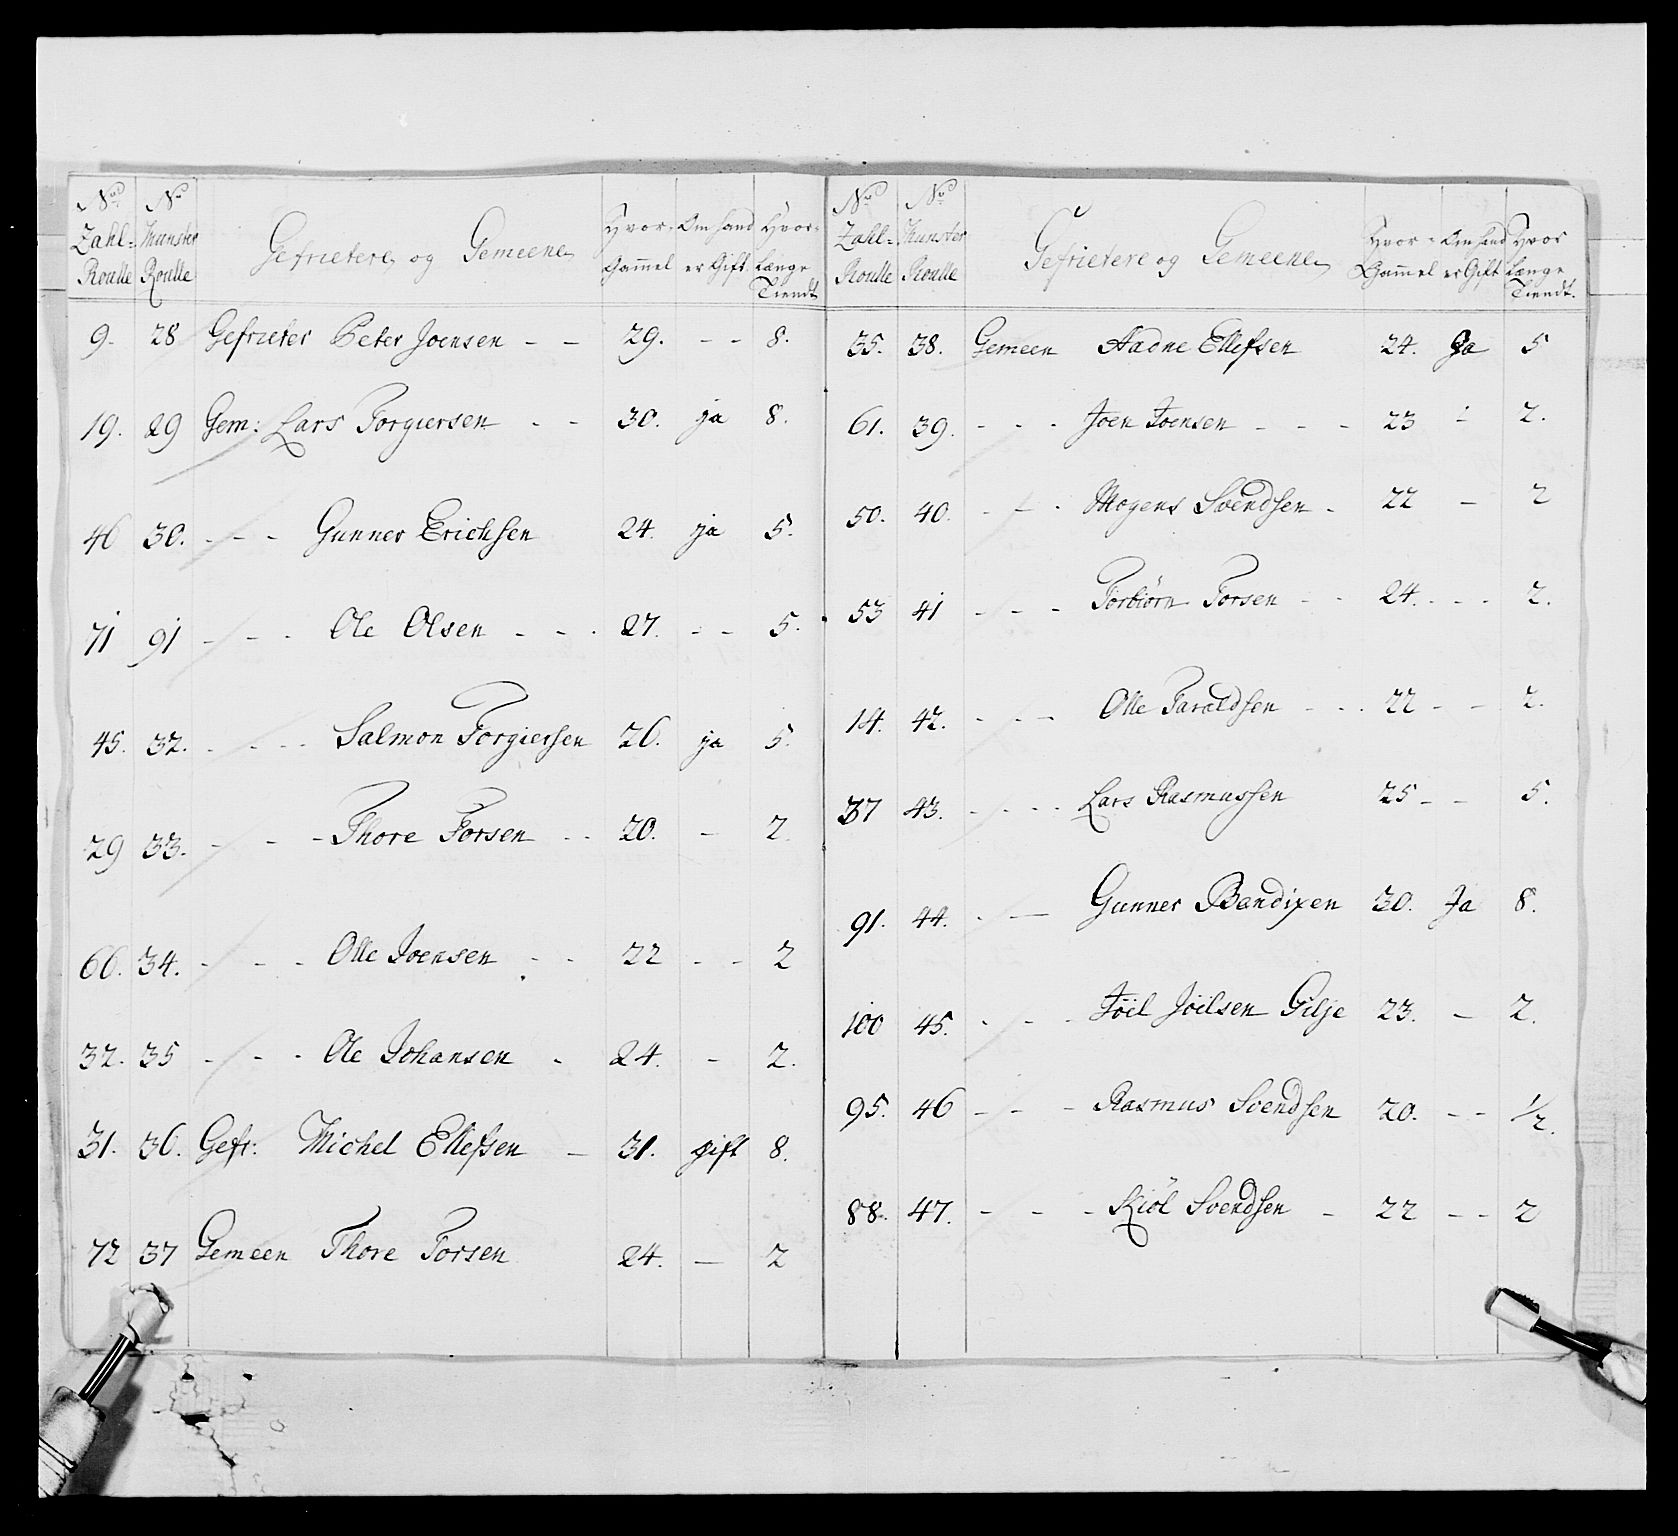 No. Zahl= Roulle | No. Munster Roulle | Gefrietere og Gemeene | Hvor= Gammel | Om hand er Gift | Hvor= Længe Tiendt
9. 28 Gefrieter Peter Joensen - - 29. - - 8.
19. 29 Gem: Lars Torgiersen - - 30. ja 8.
46 30. - - - Gunner Erichsen 24. ja 5.
71 91 - - - Ole Olsen - - . 27. - - 5.
45. 32. - - - - Salmon Torgiersen 26. ja 5.
29 33. - - - Thore Torsen - - 20. - 2.
66. 34. - - - Olle Joensen - - 22 - - 2
32. 35 - - - Ole Johansen - 24. - 2.
31. 36. Gefr: Michel Ellefsen - 31. gift 8.
72 37 Gemeen Thore Torsen 24. - 2
No. Zahl= Roulle | No. Munster Roulle | Gefrietere og Gemeene | Hvor= Gammel | Om hand er Gift | Hvor Længe Tiendt.
35. 38. Gemeen Aadne Ellefsen 24. Ja 5
61. 39. - - - Joen Joensen - - - 23 - 2.
50. 40. - - - Mogens Svendsen - 22 - 2
53 41 - - - Torbiörn Torsen - - 24. - - - 2.
14. 42. - - - Olle Taraldsen - - . 22 - - 2.
37 43. - - - - Lars Rasmussen 25 - - 5.
91. 44. - - Gunner Bendixen 30. Ja 8.
100 45. - - - Jöel Jöelsen Gilje 23. - 2.
95. 46 - - - Rasmus Svendsen 20. - - 1/2.
88. 47. - - - Kiöl Svendsen - 22 - - 2